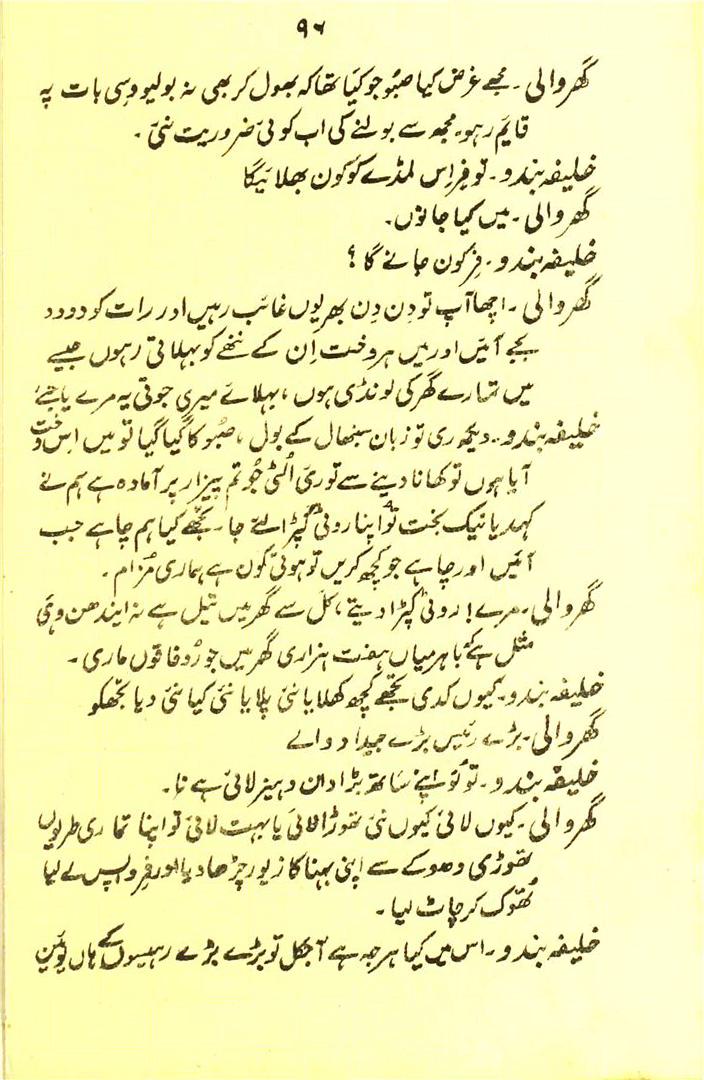 ۹۶
گھر والی ۔ مجے غرض کیا صبُو جو کیَا تھا کہ بھول کر بھی نہ بولیو وسِی بات پہ
قایم رہو۔ مجھ سے بولنے کی اب کوئی ضروریت نئی ۔
خلیفہ بندو ۔ تو فِر اِس لمڈے کو کون بھلائیگا
گھر والی ۔ میں کیا جانوں ۔
خلیفہ بندو ۔ فِر کون جانے گا ؟
گھر والی ۔ اچھا آپ تو دِن دِن بھر یوں غائب رہیں اور رات کو دو دو
بجے آئیں اور میں ہر وخت اِن کے ننھے کو بہلاتی رہوں جیسے
میں تمارے گھر کی لونڈی ہوں ، بہلائے میری جوتی یہ مرے یا جیے
خلیفہ بندو ۔ دیکھ ری تو زبان سنبھال کے بول ، صُبو کا گیا گیا تو میں اس وخت
آیا ہوں تو کھانا دینے سے تو رئی اُلٹی جُوتم پیزار پر آمادہ ہے ہم نے
کہدیا نیک بخت تو اپنا روٹی کپڑا لئے جا ۔ تجھے کیا ہم چاہے جب
آئیں اور چاہے جو کچھ کریں تو ہوتی کون ہے ہماری مُزام ۔
گھر والی ۔ مرے ! روٹی کپڑا دیتے ، کَل سے گھر میں تیل ہے نہ ایندھن وہی
مثل ہے کہ باہر میاں ہفت ہزاری گھر میں جورُو فاقوں ماری ۔
خلیفہ بندو ۔ کیوں کدی تجھے کچھ کھلایا نئی پلایا نئی کیا نئی دیا تجھکو
گھر والی ۔ بڑے رئیس بڑے جیداد والے
خلیفہ بندو ۔ تو تُو اپنے ساتھ بڑا دان دہیز لائی ہے نا ۔
گھر والی ۔ کیوں لائی کیوں نئی تھوڑا لائی یا بہت لائی تو اپنا تماری طریوں
تھوڑی دھوکے سے اپنی بہنا کا زیور چڑھا دیا اور فِر واپس لے لیا
تُھوک کر چاٹ لیا ۔
خلیفہ بندو ۔ اس میں کیا ہرجہ ہے آجکل تو بڑے بڑے رہیسوں کے ہاں